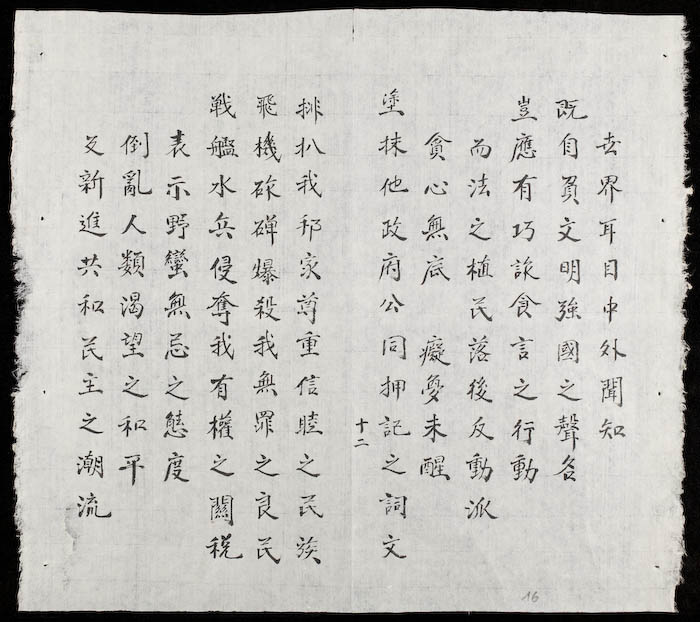 世界耳目中外聞知
既自負文明強國之聲名
豈應有巧詐食言之行動
而法之植民落後反動派
貪心無底 癡夢未醒
塗抹他政府公同押記之詞文
十二
排扒我邦家尊重信睦之民族
飛機磾爆殺我無罪之良民
戦艦水兵侵奪我有權之關税
表示野蠻無忌之態度
倒亂人類渴望之和平
新進共和民主之潮流
16